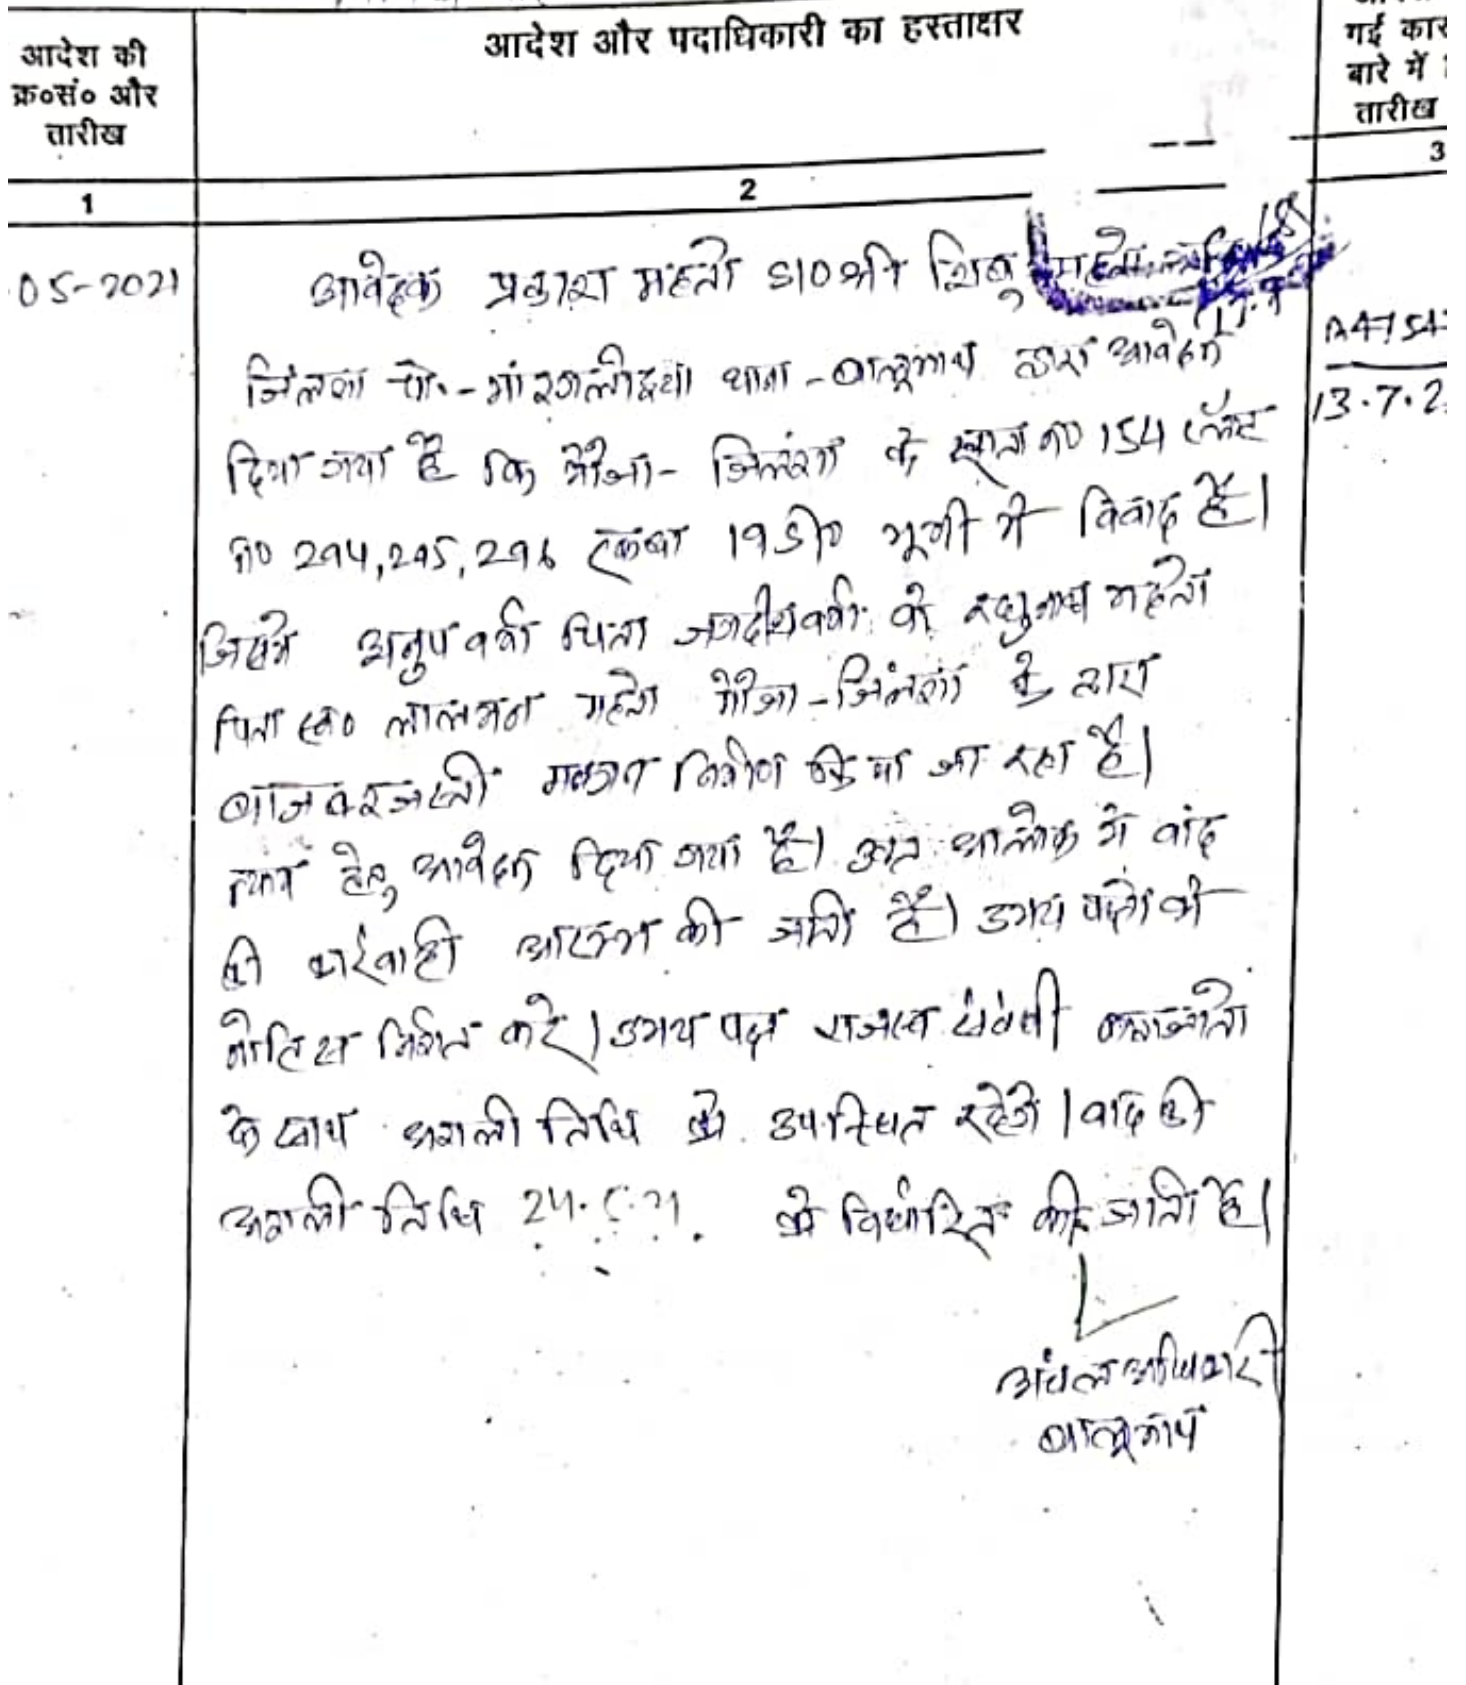 आदेश की
क्र०सं० और
तारीख
आदेश और पदाधिकारी का हस्ताक्षर
गई कार
बारे में
तारीख
1
2
3
05-2021
आवेदक प्रकाश महतो S/O श्री शिबू महतो
जिलंगा पो०- थाना - बालूमाथ द्वारा आवेदन
दिया गया है कि मौजा - जिलंगा के खाता न० 154 प्लॉट
न० 294, 295, 296 रकबा 19 डी० भूमी में विवाद है।
जिसमे अनुप वर्मा पिता जगदीश वर्मा वो रघुनाथ महतो
पिता स्व० लालमन महतो मौजा - जिलंगा के द्वारा
मकान निर्माण किया जा रहा है।
हेतु आवेदन दिया गया है। उक्त आलोक मे वाद
की कार्रवाही आरम्भ की जाती है। उभय पक्षो को
नोटिस निर्गत करे। उभय पक्ष राजस्व संबंधी कागजातो
के साथ अगली तिथि को उपस्थित रहेगे। वाद की
अगली तिथि को निर्धारित की जाती है।
अंचल अधिकारी
बालूमाथ
13.7.2